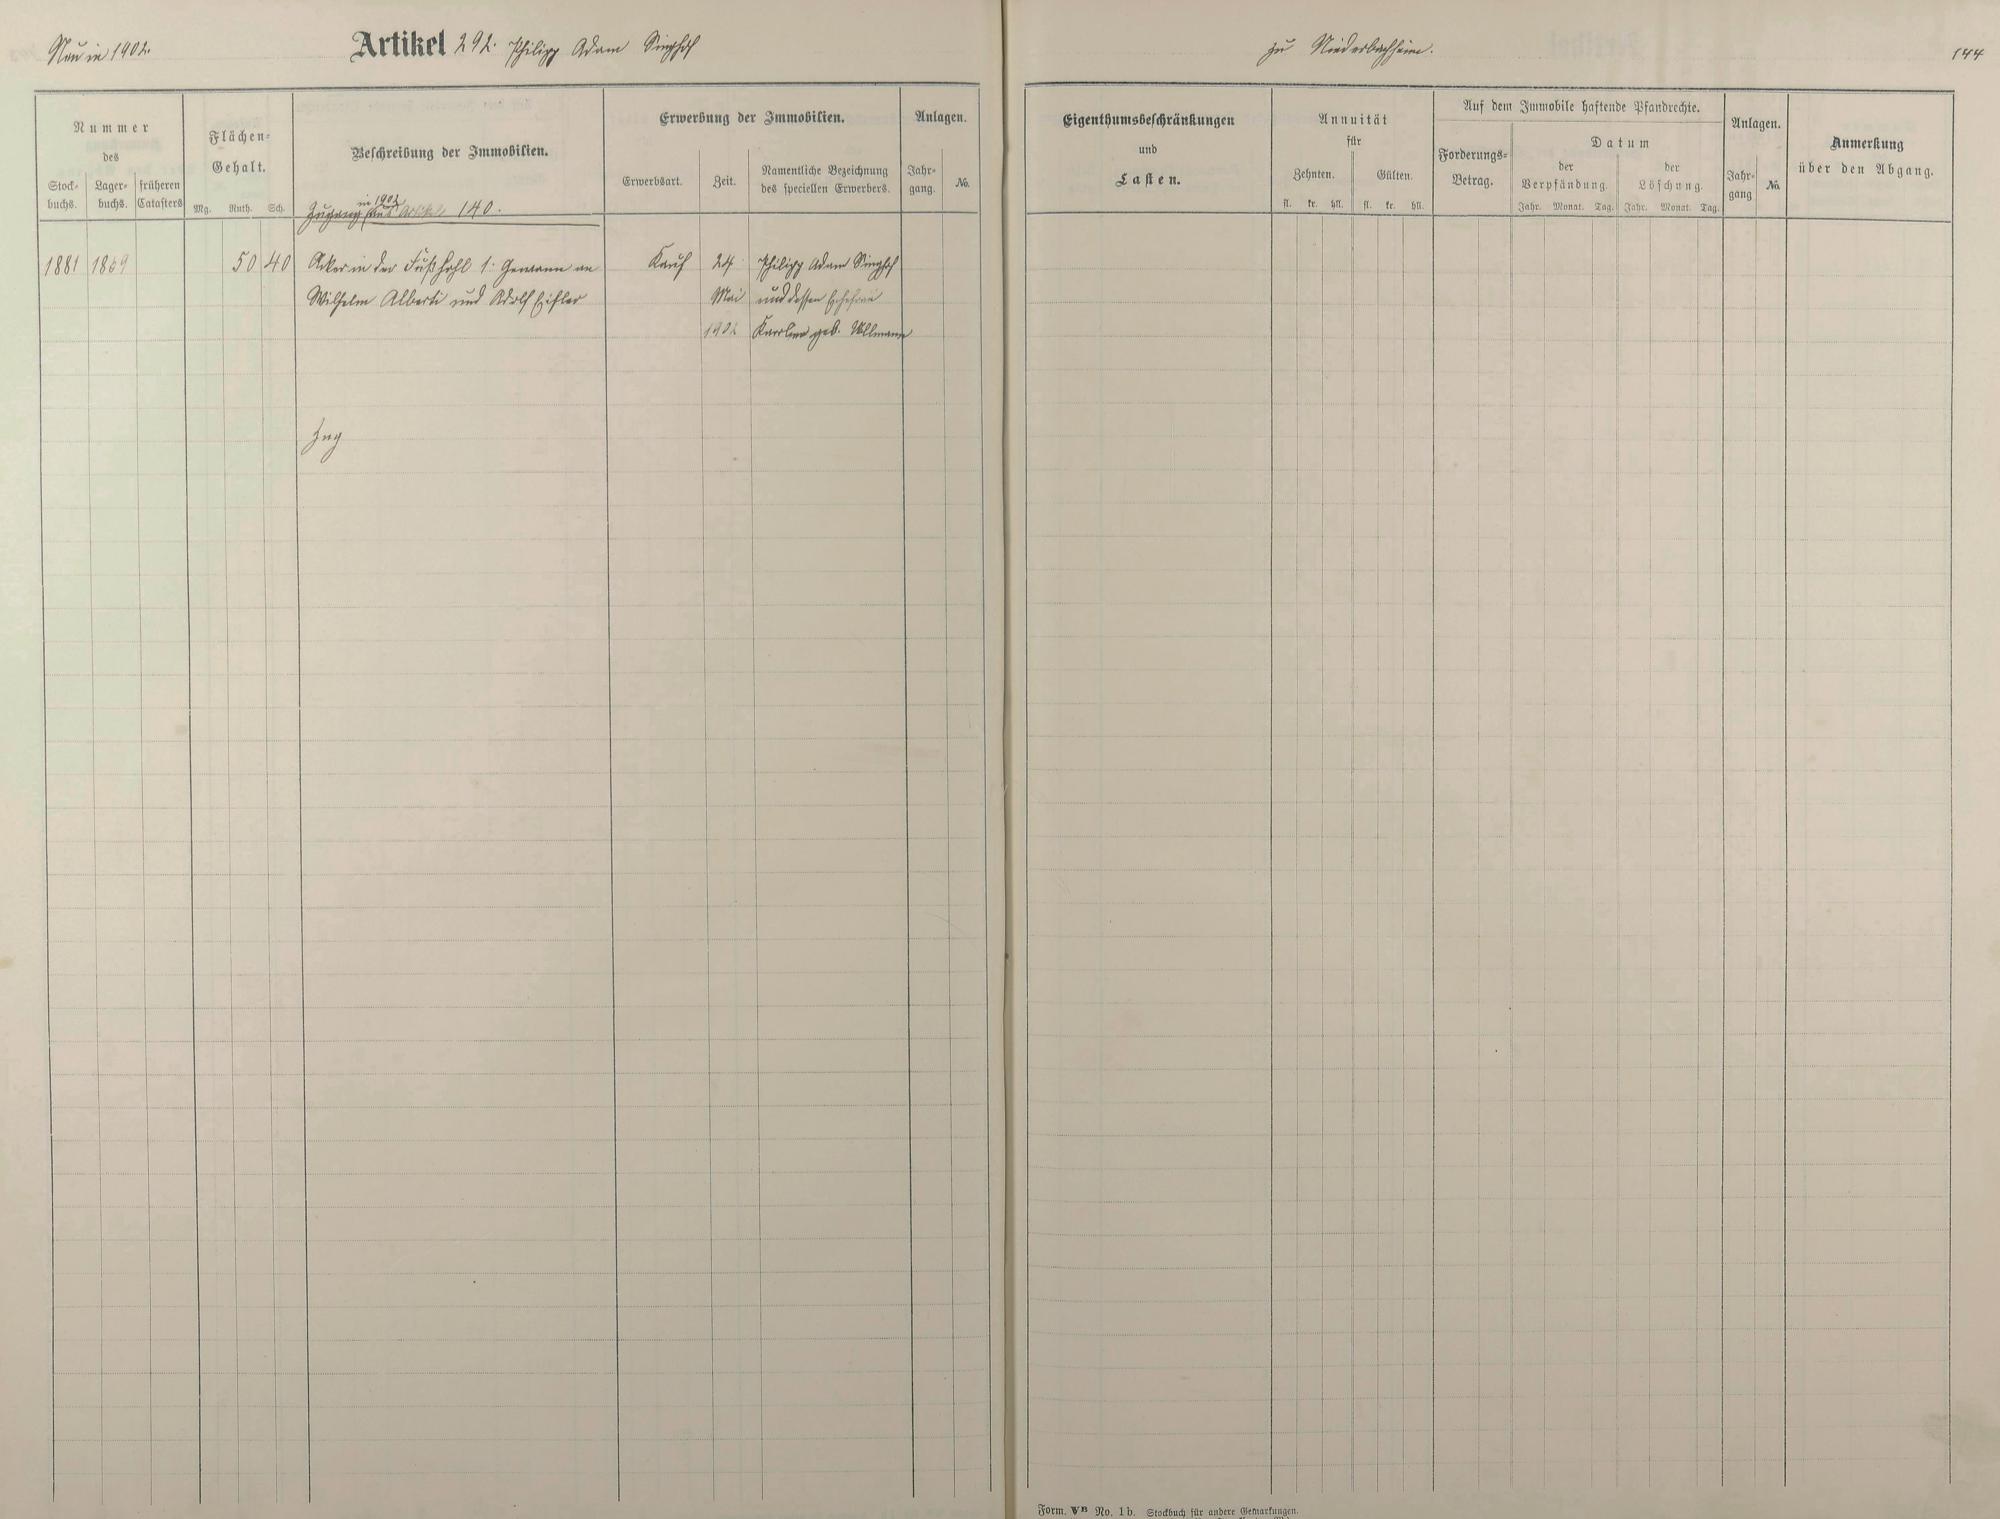 Neu in 1902.
Artikel 292. Philipp Adam Singhof
zu Niederbachheim.
144
Nummer
des
Stock-
buchs.
Lager-
buchs.
früheren
Catasters
Flächen-
Gehalt.
Mg. Ruth. Sch.
Beschreibung der Immobilien.
Erwerbung der Immobilien.
Erwerbsart.
Zeit.
Namentliche Bezeichnung
des speciellen Erwerbers.
Anlagen.
Jahr-
gang.
No.
Eigenthumsbeschränkungen
und
Lasten.
Annuität
für
Zehnten.
Gülten.
fl. kr. hll. fl. kr. hll.
Auf dem Immobile haftende Pfandrechte.
Forderungs-
Betrag.
Datum
der
Verpfändung.
der
Löschung.
Jahr. Monat. Tag. Jahr. Monat. Tag.
Anlagen.
Jahr-
gang
No.
Anmerkung
über den Abgang.
in 1902
Zugang aus Artikel 140.
1881 1869 50 40 Acker in der Fußhohl 1. Gewann an Kauf 24 Philipp Adam Singhof
Wilhelm Alberti und Adolf Eisler Mai und dessen Ehefrau
1902 Karoline geb. Ullmann
Zug
Form. VB No. 1b. Stockbuch für andere Gemarkungen.